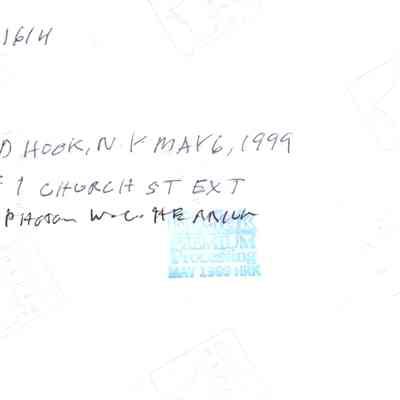 1614
D HOOK, N.Y MAY 6, 1999
1 CHURCH ST EXT
PHOTO W.C. HERRICK
PREMIUM
Processing
MAY 1999 HRK